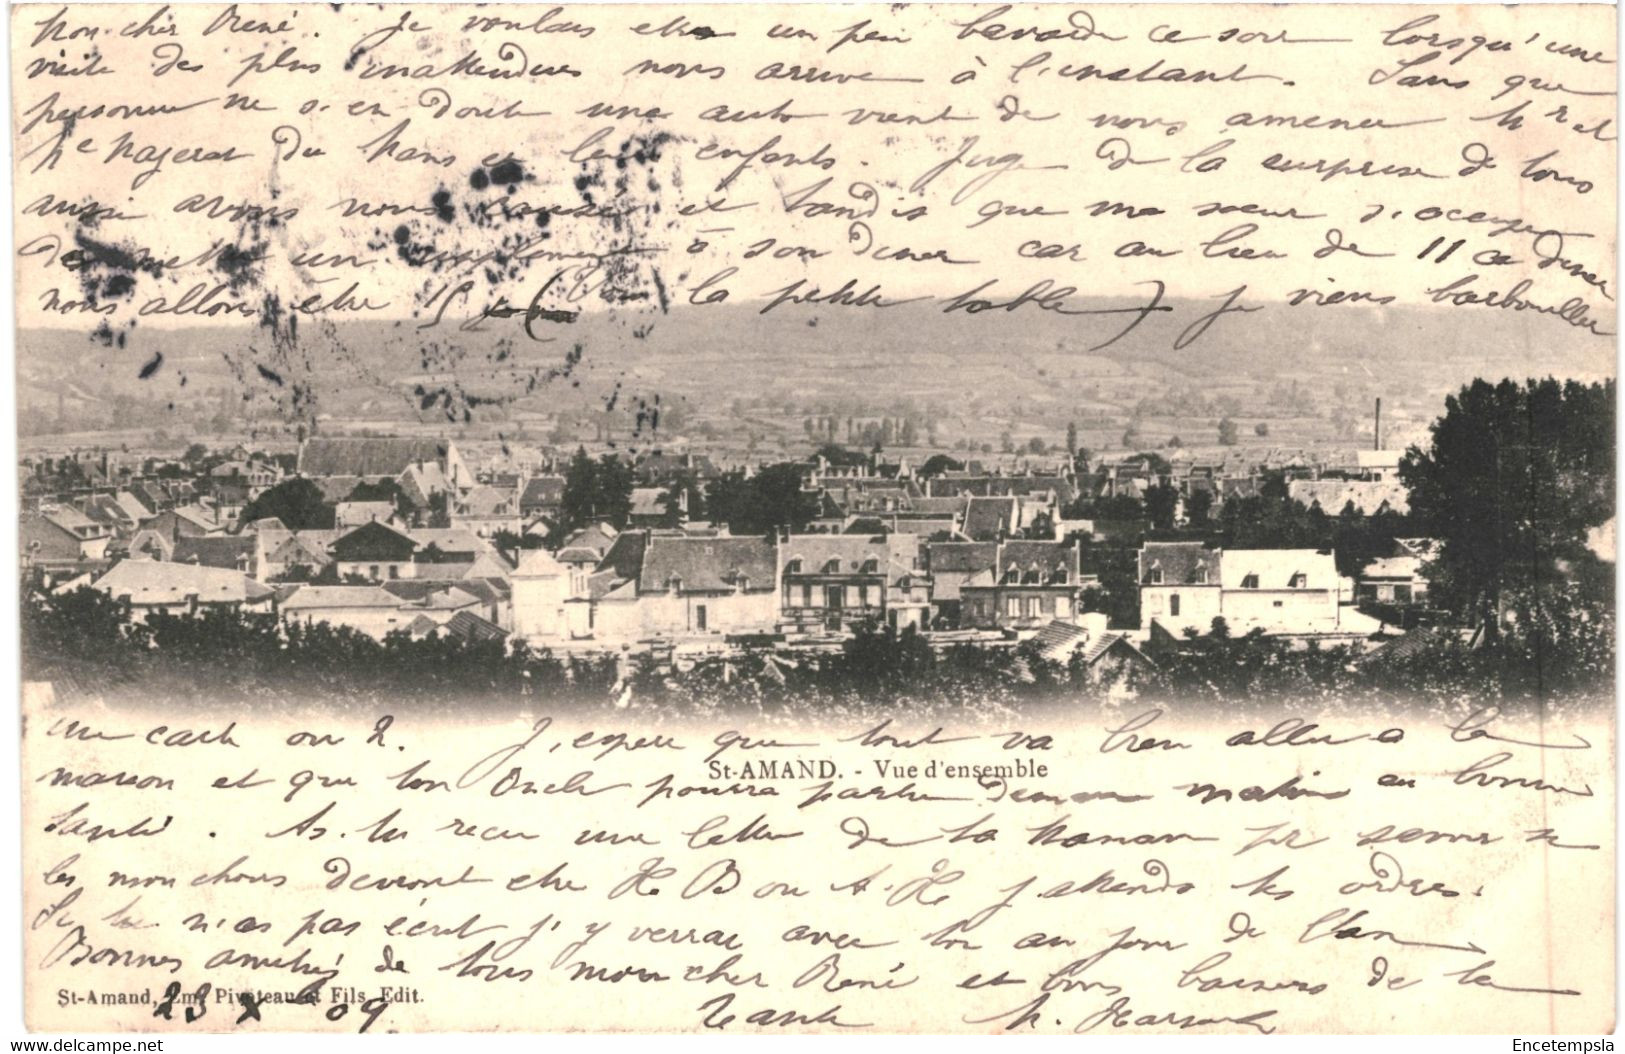 Mon cher René. Je voulais être un peu bavarde ce soir lorsqu'une
visite des plus inattendues nous arrive à l'instant. Sans que
personne ne s'en doute une auto vient de nous amener Mr et
Me du Mans et leurs enfants. Juge de la surprise de tous
aussi avons nous causé et tandis que ma sœur s'occupe
de mettre un supplément à son diner car au lieu de 11 a diner
nous allons être 15 (la petite table) je viens barbouiller
une carte ou 2. J'espère que tout va bien allu a la
maison et que ton Oncle pourra partir demain matin en bonne
santé. As-tu reçu une lettre de ta Maman pr savoir si
les mouchoirs devront être H. B ou A. H. J'attends tes ordres.
Si tu n'as pas écrit j'y verrai avec toi au jour de l'an
St-AMAND. - Vue d'ensemble
Bonnes amitiés de tous mon cher René et bons baisers de ta
Tante M.
St-Amand, Em. Pivoteau et Fils, Edit.
23 X 09
Encetempsla